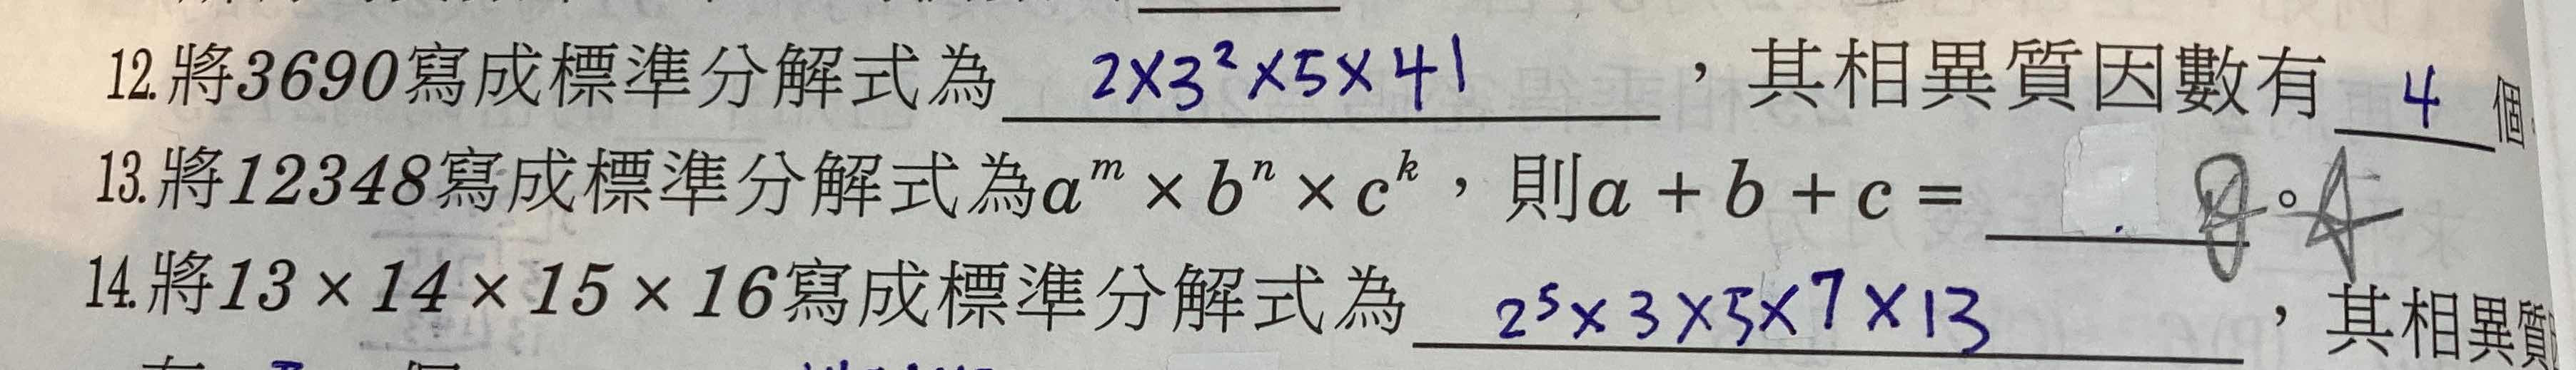 12.將3690寫成標準分解式為 2×3²×5×41 ，其相異質因數有 4 個
13.將12348寫成標準分解式為aᵐ × bⁿ × cᵏ，則a + b + c = 。
14.將13 × 14 × 15 × 16寫成標準分解式為 2⁵×3×5×7×13 ，其相異質